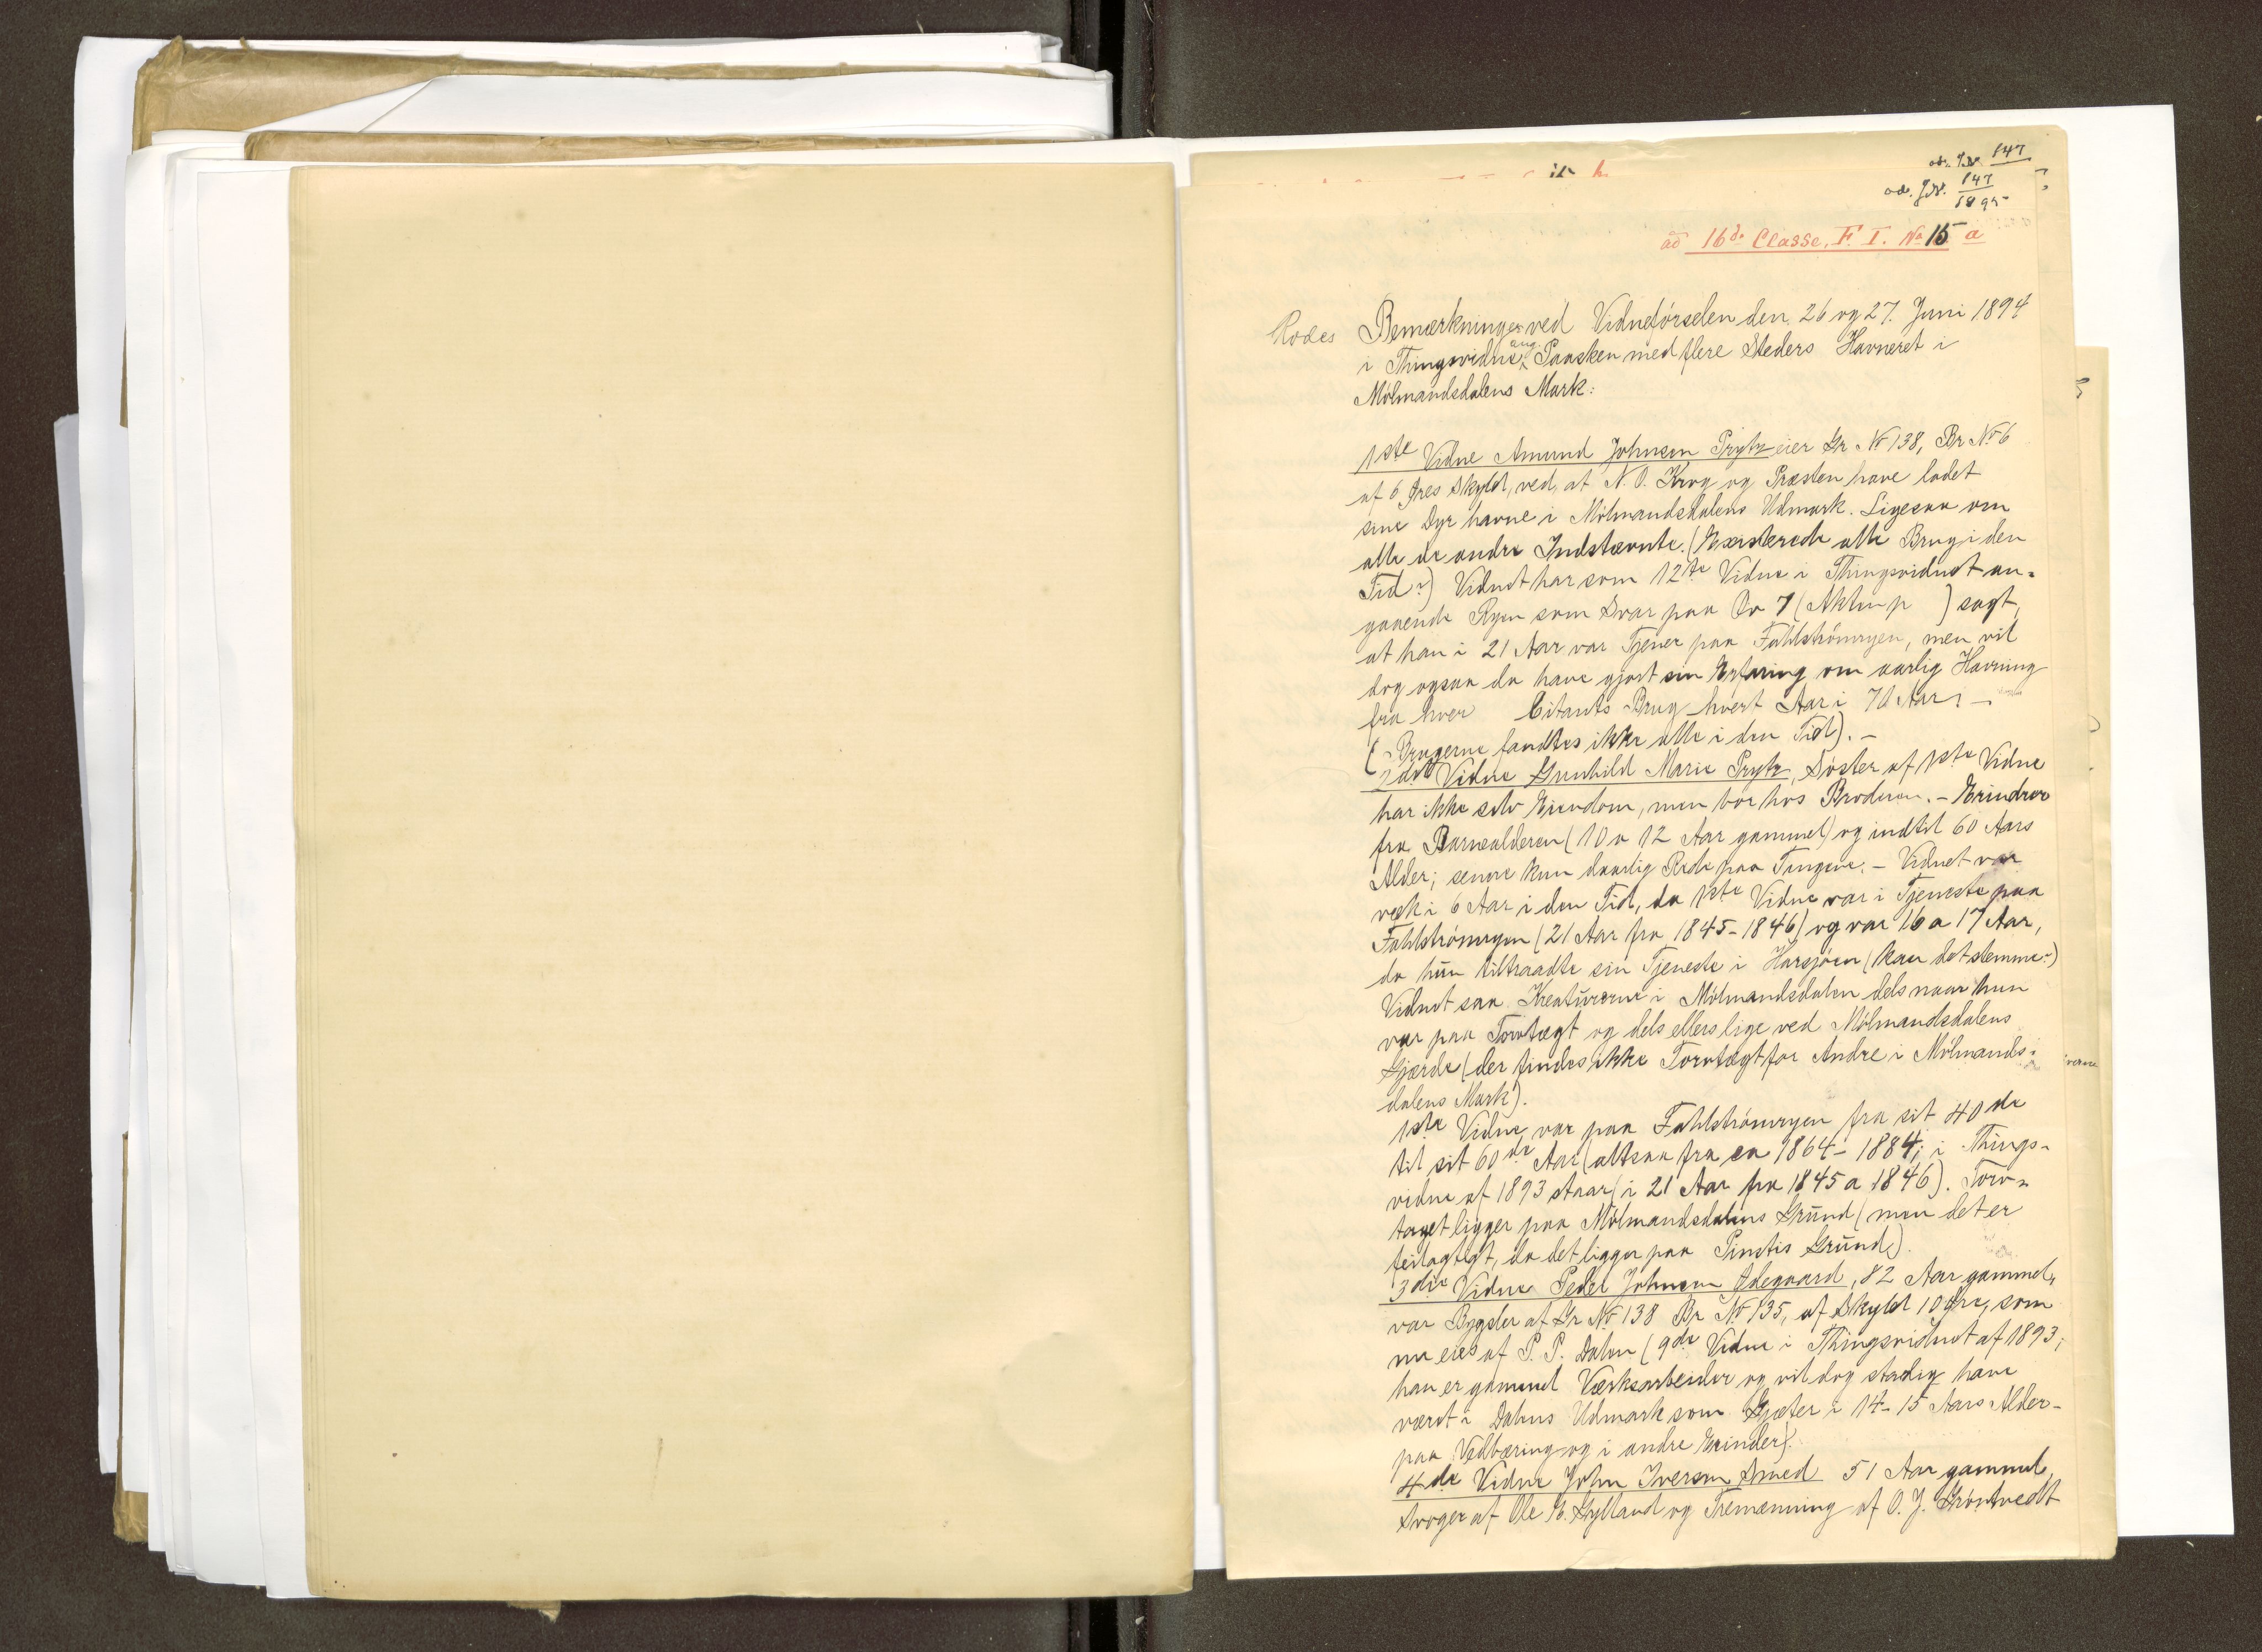 ad. J.N. 147
ad. J.N. 147
1895
ad 16de Classe, F. I. No 15 a
Rodes Bemærkninger ved Vidneførselen den 26 og 27. Juni 1894
i Thingsvidne ang. Paasken med flere Steders Havneret i
Mölmandsdalens Mark:
1ste Vidne Amund Johnsen Prytz eier Gr. No 138, Br No 6
af 6 Øres Skyld, ved, at N. O. Krog og Præsten have ladet
sine Dyr havne i Mölmandsdalens Udmark. Ligesaa om
alle de andre Indstævnte. (Existerede alle Brug i den
Tid?) Vidnet har som 12te Vidne i Thingsvidnet an-
gaaende Ryen som Svar paa Qv 7 (Akten p ) sagt,
at han i 21 Aar var Tjener paa Fahlströmryen, men vil
dog ogsaa da have gjort sin Erfaring om aarlig Havning
fra hver Citants Brug hvert Aar i 70 Aar? -
(Brugerne fandtes ikke alle i den Tid). -
2det Vidne Gunhild Marie Prytz, Söster af 1ste Vidne
har ikke selv Eiendom, men bor hos Broderen. - Erindrer
fra Barnealderen (10 a 12 Aar gammel) og indtil 60 Aars
Alder; senere kun daarlig Rede paa Tingene. - Vidnet var
væk i 6 Aar i den Tid, da 1ste Vidne var i Tjeneste paa
Fahlströmryen (21 Aar fra 1845-1846) og var 16 a 17 Aar,
da hun tiltraadte sin Tjeneste i Harsjöen (kan det stemme?)
Vidnet saa Kreaturerne i Mölmandsdalen dels naar hun
var paa Torvtægt og dels ellers lige ved Mölmandsdalens
Gjærde (der findes ikke Torvtægt for Andre i Mölmands-
dalens Mark).
1ste Vidne var paa Fahlströmryen fra sit 40de
til sit 60de Aar (altsaa fra ca 1864-1884; i Things-
vidne af 1893 staar (i 21 Aar fra 1845 a 1846). Torv-
taget ligger paa Mölmandsdalens Grund (men det er
feilagtigt, da det ligger paa Pinstis Grund).
3die Vidne Peder Johnsen Ødegaard, 82 Aar gammel,
var Bygsler af Gr No 138 Br No 135, af Skyld 10 Øre, som
nu eies af P. P. Dalen (9de Vidne i Thingsvidnet af 1893;
han er gammel Værksarbeider og vil dog stadig have
været i Dalens Udmark som Gjæter i 14-15 Aars Alder -
paa Vedbæring og i andre Erinder).
4de Vidne John Iversen Smed 51 Aar gammel,
Svoger af Ole E. Gylland og Tremænning af O. J. Gröntvedt